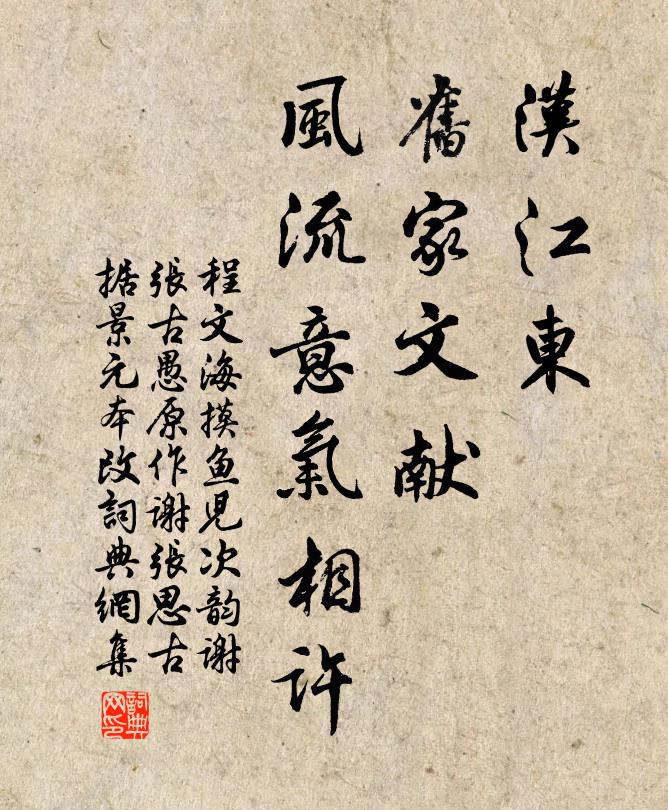 漢江東
舊家文献
風流意氣相許
程文海摸魚兒次韵謝
張古愚原作謝張思古
据景元本改詞典網集
詞典網印